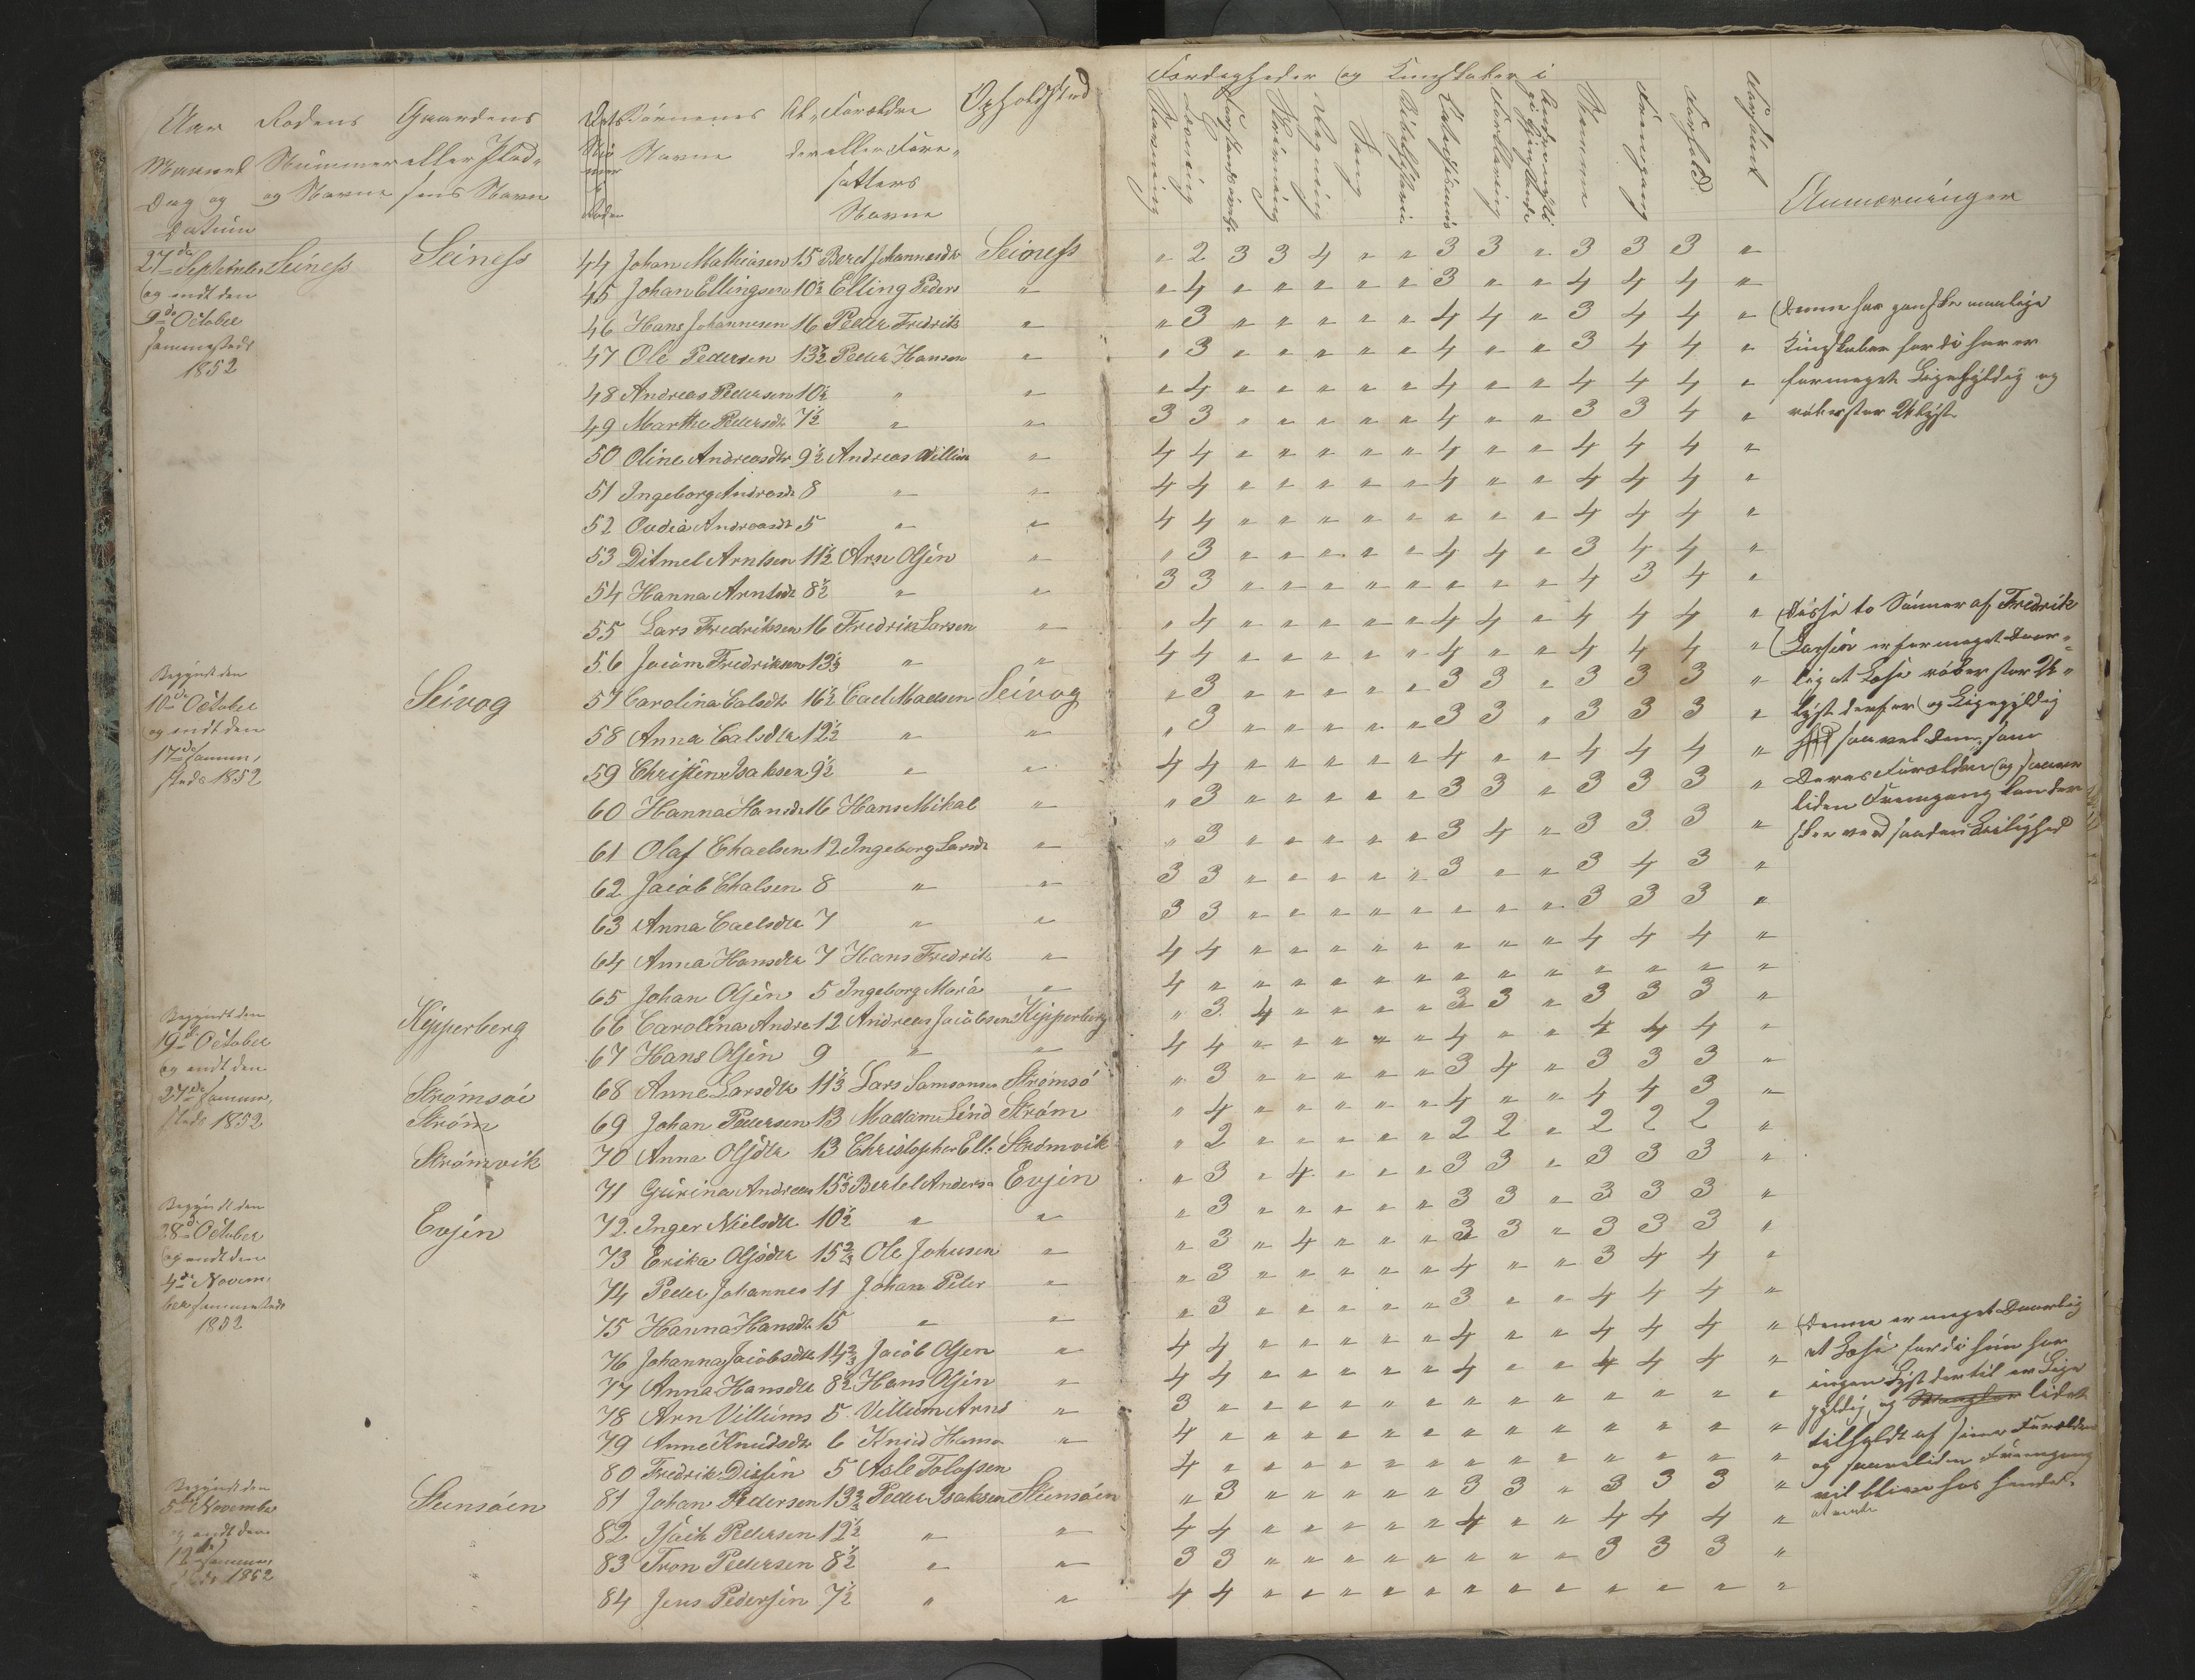 Færdigheder og Kundskaber i
Aar Rodens Gaardens Børnenes Al- Forældre Opholdsted
Maaned Nummer eller Plad- Navne der eller Fore-
Dag og og Navne sens Navn satters
Datum Navne
Stavning Læsning Skrivning Regning Sang Bibelhistorie Forklaring Nemme Fremgang Forhold Forsømt Anmærkninger
27de September Seiness Seiness 44 Johan Mathiasen 15 Beret Johannesdtr Seioness " 2 3 3 4 " " 3 3 " 3 3 3 "
og endt den 45 Johan Ellingsen 10½ Elling Peders " " 4 " " " " " 3 " " 4 4 4 "
9de October 46 Hans Johannesen 16 Peder Fredriks " " 3 " " " " " 4 4 " 3 4 4 " Denne har ganske maalige
sammesteds 47 Ole Pedersen 13½ Peder Hansen " " 3 " " " " " 4 " " 3 4 4 " Kundskaber fordi han er
1852 48 Andreas Pedersen 10½ " " " 4 " " " " " 4 " " 4 4 4 " formeget Ligegyldig og
49 Martha Pedersdtr 7½ " " 3 3 " " " " " 4 " " 3 3 4 " røber stor Ulyst
50 Oline Andreasdtr 9½ Andreas Villum " 4 4 " " " " " 4 " " 4 4 4 "
51 Ingeborg Andreasdtr 8 " " 4 4 " " " " " 4 " " 4 4 4 "
52 Andreasdtr 5 " " 4 4 " " " " " " " " 4 4 4 "
53 Ditmel Arntsen 11½ Arn Olsen " " 3 " " " " " 4 4 " 3 4 4 "
54 Hanna Arntsdtr 8½ " " 3 3 " " " " " " " " 4 3 4 "
55 Lars Fredriksen 16 Fredrik Larsen " " 4 " " " " " 4 4 " 4 4 4 " Disse to Sønner af Fredrik
Begyndt den 56 Joakim Fredriksen 13⅓ " " 4 4 " " " " " 4 " " 4 4 4 " Larsen er formeget Daar-
10de October Seivog 57 Carolina Calsdtr 16½ Cael Maelsen Seivog " 3 " " " " " 3 3 " 3 3 3 " lig at Læse røber stor U-
og endt den 58 Anna Calsdtr 12½ " " " 3 " " " " " 3 3 " 3 3 3 " lyst derfor og Ligegyldig
17de samme, 59 Christen Isaksen 9½ " " 4 4 " " " " " 4 " " 4 4 4 " saavel dem, som
steds 1852 60 Hanna Hansdtr 16 Hans Mikal " " 3 " " " " " 3 3 " 3 3 3 " Deres Forældre og saare
61 Olaf Chaelsen 12 Ingeborg Larsdtr " " 3 " " " " " 3 4 " 3 3 3 " liden Fremgang kan der
62 Jacob Chalsen 8 " " 3 3 " " " " " 3 " " 3 4 3 " skee ved saadan Leilighed
63 Anna Caelsdtr 7 " " 3 3 " " " " " " " " 3 3 3 "
64 Anna Hansdtr 7 Hans Fredrik " 4 4 " " " " " " " " 4 4 4 "
65 Johan Olsen 5 Ingeborg Maria " 4 " " " " " " " " " " " " "
Begyndt den Kipperberg 66 Carolina Andre 12 Andreas Jacobsen Kipperberg " 3 4 " " " " 3 3 " 3 3 3 "
19de October 67 Hans Olsen 9 " " 4 4 " " " " " 4 " " 4 4 4 "
og endt den Strømsøe 68 Anne Larsdtr 11⅓ Lars Samsonsen Strømsø " 3 " " " " " 3 4 " 3 3 3 "
27de samme, Strøm 69 Johan Pedersen 13 Madame Lind Strøm " 4 " " " " " 4 " " 4 4 3 "
steds 1852 Strømvik 70 Anna Olsdtr 13 Christopher Ell. Strømvik " 2 " " " " " 2 2 " 2 2 2 "
71 Gurina Andreas 15⅓ Bertel Anders Evjen " 3 " 4 " " " 3 3 " 3 3 3 "
Begyndt den Evjen 72 Inger Nielsdtr 10½ " " " 3 " " " " " 3 3 " 3 3 3 "
28de October 73 Erika Olsdtr 15⅔ Ole Johnsen " " 3 " 4 " " " 3 3 " 3 3 3 "
og endt den 74 Peder Johannes 11 Johan Peter " " 3 " " " " " 4 " " 3 4 4 "
4de Novem- 75 Hanna Hansdtr 15 " " " 3 " " " " " 3 " " 4 4 4 "
ber sammesteds 76 Johanna Jacobsdtr 14⅔ Jacob Olsen " 4 4 " " " " " 4 " " 4 4 4 " Denne er meget Daarlig
1852 77 Anna Hansdtr 8½ Hans Olsen " 4 4 " " " " " 4 " " 4 4 4 " at Læse fordi hun har
78 Arn Villums 5 Villum Arns " 3 " " " " " " " " " " " " " ingen Lyst dertil er Lige
79 Anne Knudsdtr 6 Knud Hansen " 4 " " " " " " " " " " " " " gyldig, og lidet
80 Fredrik Dissen 5 Asle Tolofsen 4 " " " " " " " " " " " " " tilholdt af sine Forældre
Begyndt den Steensøen 81 Johan Pedersen 13⅔ Peder Isaksen Steensøen " 3 " " " " " 3 3 " 3 3 3 " og saareliden Fremgang
5te November 82 Isach Pedersen 12½ " " 4 4 " " " " " 4 " " 4 4 4 " vil blive hos hende
og endt den 83 Tron Pedersen 8½ " " 3 3 " " " " " " " " 3 3 3 "
12te samme, 84 Jens Pedersen 7½ " " 4 4 " " " " " " " " " " " "
steds 1852